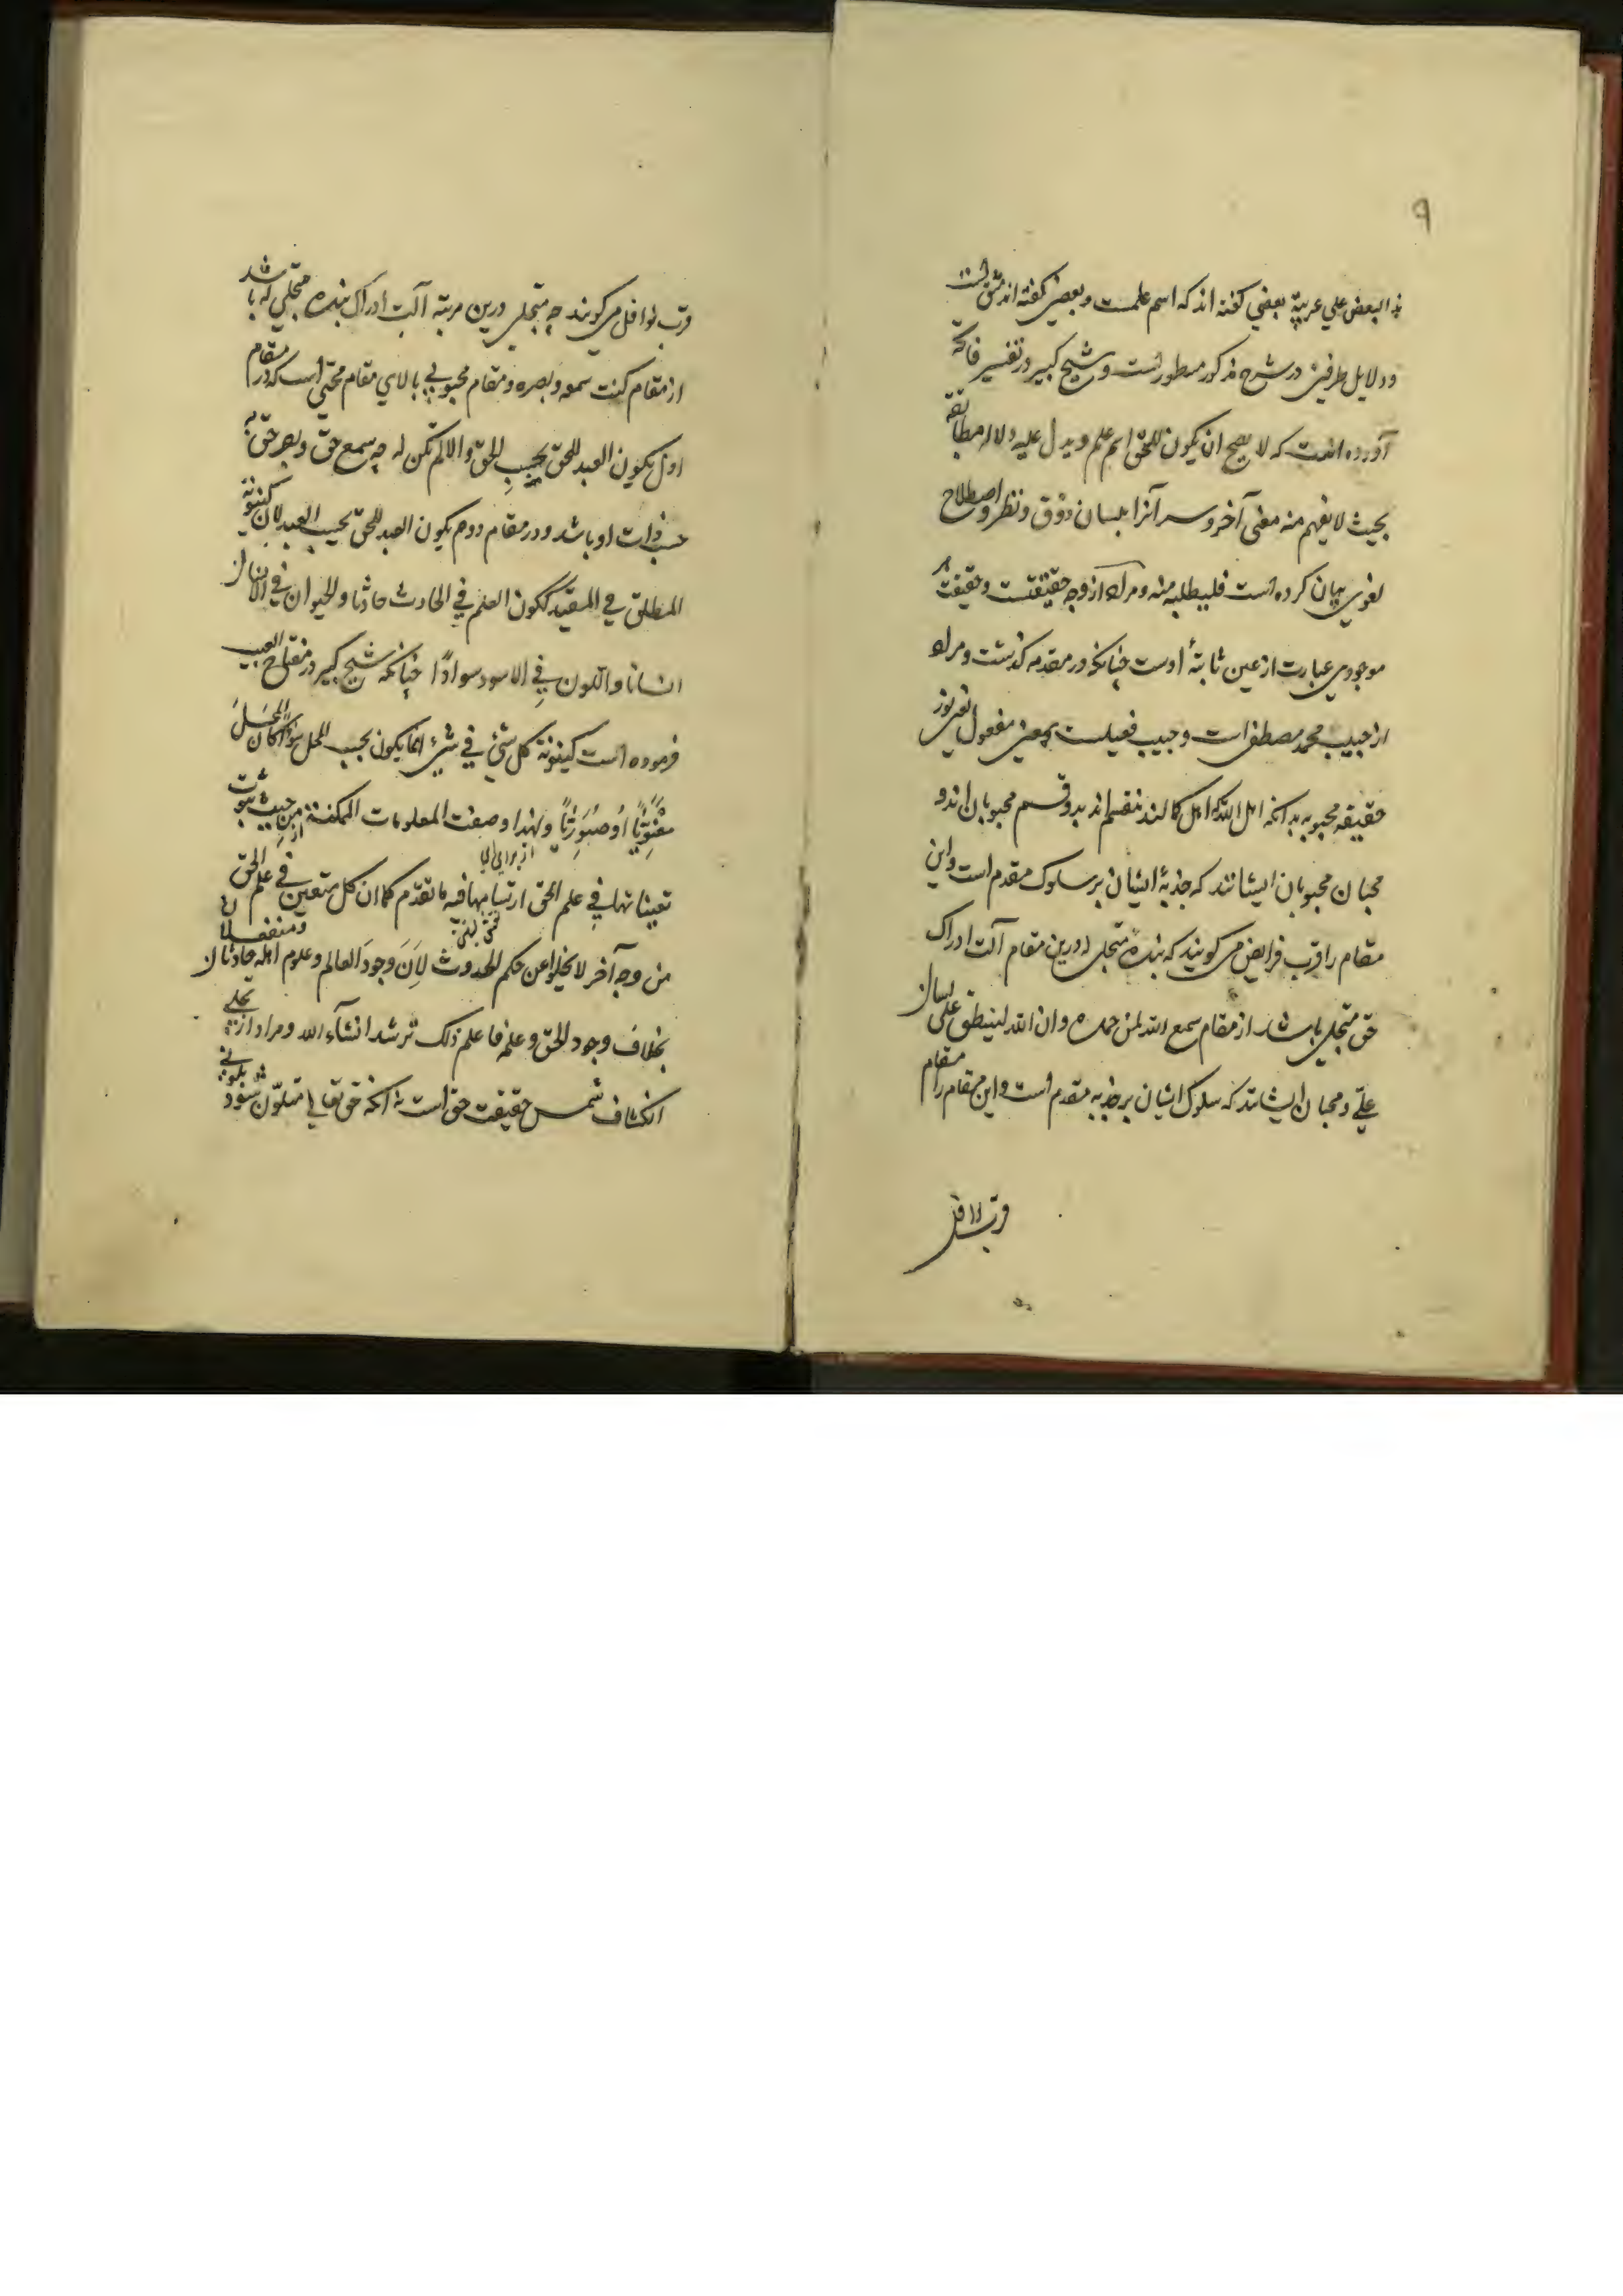 ۹
البعض علی عربیة بعضی گفته اند که اسم علمست و بعضی گفته اند مشتق است
و دلایل طرفین در شرح مذکور مسطورست و شیخ کبیر در تفسیر فاتحه
آورده است که لا یصح ان یکون للحق اسم علم و یدل علیه دلالة مطابقة
بحیث لا یفهم منه معنی آخر و سر آنرا بلسان ذوق و نظر و اصطلاح
لغوی بیان کرده است فلیطلبه منه و مراد از وجه حقیقتست و حقیقت هر
موجودی عبارت از عین ثابتهٔ اوست چنانکه در مقدمه گذشت و مراد
از حبیب محمد مصطفی است و حبیب فعیلست بمعنی مفعول یعنی نور
حقیقه محبوبه بدانکه اهل الله که اهل کمالند منقسم اند بدو قسم محبوبان اند و
محبان محبوبان ایشانند که جذبهٔ ایشان بر سلوک مقدم است و این
مقام را قرب فرایض می گویند که بندهٔ متجلی له درین مقام آلت ادراک
حق متجلی باشد از مقام سمع الله لمن حمده و ان الله لینطق علی لسان
علی و محبان ایشانند که سلوک ایشان بر جذبه مقدم است و این مقام را مقام
قرب نوافل
قرب نوافل می گویند چه متجلی درین مرتبه آلت ادراک بنده متجلی له باشد
از مقام کنت سمعه و بصره و مقام محبوبی بالای مقام محبی است که در مقام
اول یکون العبد للحق بحسب الحق و الا لم تکن له چه سمع حق و بصر حق به
حسب ذات او باشد و در مقام دوم یکون العبد للحق بحسب العبد لان کینونة
المطلق فی المقید ککون العلم فی الحادث حادثا و الحیوان فی الانسان
انسانا و اللون فی الاسود سوادًا چنانکه شیخ کبیر در مفتاح الغیب
فرموده است کینونة کل شیء فی شیء انما یکون بحسب المحل سواء کان المحل
معنویًا او صوریًا و لهذا وصفت المعلومات الممکنة من حیث ثبوت
تعیناتها فی علم الحق ارتسامها فیه ما تقدم کما ان کل متعین فی علم الحق
من وجه آخر لا یخلوا عن حکم الحدوث لان وجود العالم و علوم اهله حادثان
بخلاف وجود الحق و علمه فاعلم ذلک ترشد انشآء الله و مراد از تجلی
انکشاف شمس حقیقت حق است نه آنکه حق تعالی متلون شود